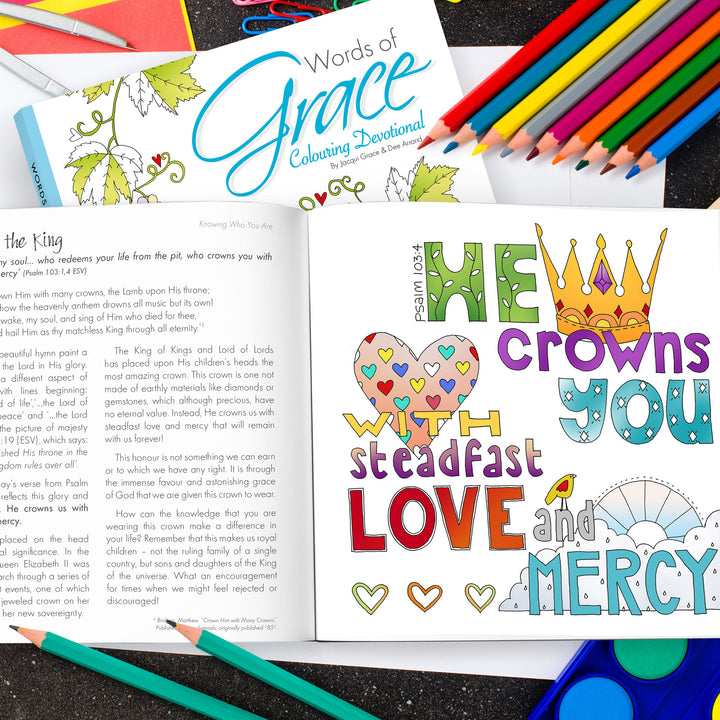 Words of
Grace
Colouring Devotional
By Jacqui Grace & Dee Arrand
WORDS
Knowing Who You Are
the King
my soul... who redeems your life from the pit, who crowns you with
mercy' (Psalm 103:1,4 ESV)
own Him with many crowns, the Lamb upon His throne;
how the heavenly anthem drowns all music but its own!
wake, my soul, and sing of Him who died for thee,
d hail Him as thy matchless King through all eternity.'1
beautiful hymn paint a
the Lord in His glory.
a different aspect of
with lines beginning:
of life','...the Lord of
peace' and '...the Lord
the picture of majesty
:19 (ESV), which says:
ished His throne in the
gdom rules over all'.
ay's verse from Psalm
reflects this glory and
. He crowns us with
mercy.
placed on the head
al significance. In the
ueen Elizabeth II was
arch through a series of
t events, one of which
jeweled crown on her
her new sovereignty.
The King of Kings and Lord of Lords
has placed upon His children's heads the
most amazing crown. This crown is one not
made of earthly materials like diamonds or
gemstones, which although precious, have
no eternal value. Instead, He crowns us with
steadfast love and mercy that will remain
with us forever!
This honour is not something we can earn
or to which we have any right. It is through
the immense favour and astonishing grace
of God that we are given this crown to wear.
How can the knowledge that you are
wearing this crown make a difference in
your life? Remember that this makes us royal
children – not the ruling family of a single
country, but sons and daughters of the King
of the universe. What an encouragement
for times when we might feel rejected or
discouraged!
Matthew. "Crown Him with Many Crowns".
originally published
Psalm 103:4
HE
CROWNS
YOU
WITH
steadfast
LOVE and
MERCY